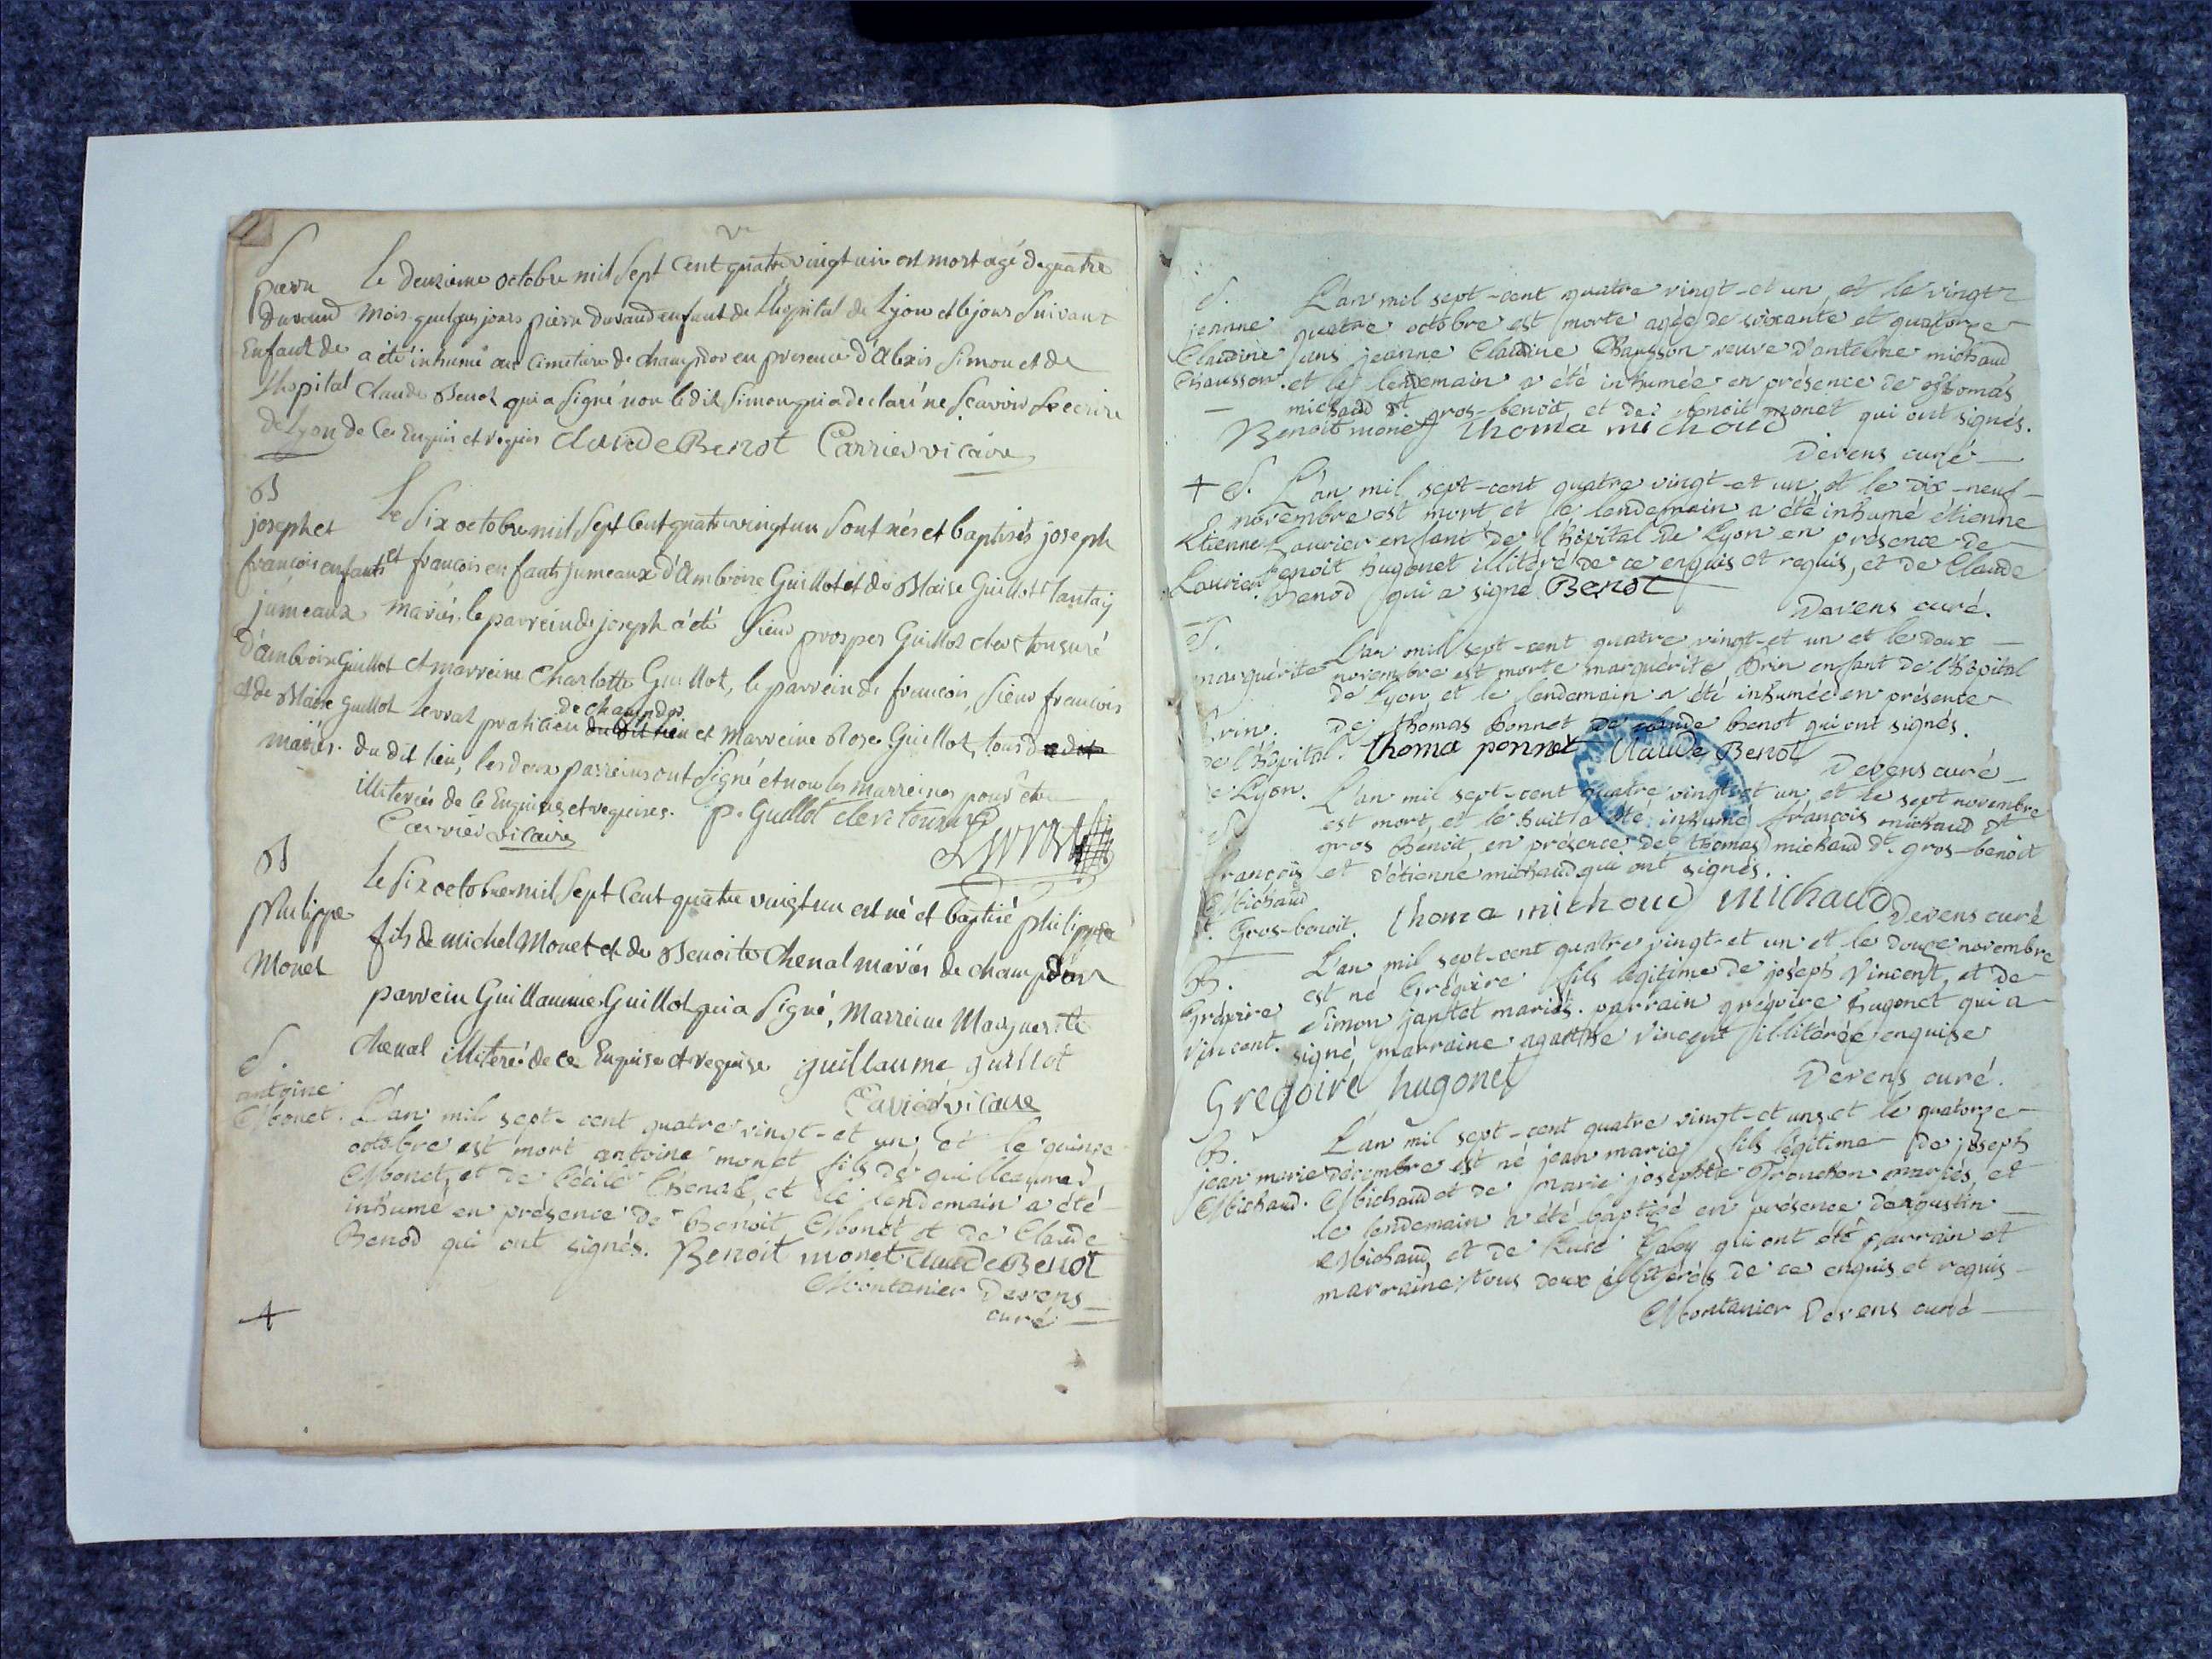 S
pierre
durand
Enfant de
l'hopital
de Lyon
Le deuxieme octobre mil Sept Cent quatre vingt un est mort agé de quatre
mois quelques jours pierre durand enfant de l'hopital de Lyon et le jour Suivant
a été inhumé au Cimetiere de champdor en presence d'Alexis Simon et de
Claude Benot qui a Signé non ledit Simon qui a declaré ne Scavoir Ecrire
de Ce Enquis et requis Claude Benot Carrier vicaire
B
joseph et
françois enfants
jumeaux
d'ambroise Guillot
et de Blaise Guillot
mariés.
Le Six octobre mil Sept Cent quatre vingt un Sont nés et baptisés joseph
et françois enfants jumeaux d'Ambroise Guillot et de Blaise Guillot Tantay
mariés, le parrein de joseph a été Sieur prosper Guillot clerc tonsuré
et marreine Charlotte Guillot, le parrein de françois, Sieur françois
Levrat praticien du dit lieu de champdor et marreine Rose Guillot, tous du dit
du dit lieu, les deux parreins ont Signé et non les marreines pour être
illiterées de Ce Enquises et requises. p. Guillot clerc tonsuré
Carrier vicaire Levrat
B
Philippe
Monet
Le Six octobre mil Sept Cent quatre vingt un est né et baptisé philippe
fils de michel Monet et de Benoite Chenal mariés de champdor
parrein Guillaume Guillot qui a Signé, Marreine Marguerite
chenal illiteré de Ce Enquise et requise guillaume guillot
Carrier vicaire
S.
antoine
Monet.
L'an mil sept-cent quatre vingt-et un et le quinze
octobre est mort antoine monet fils de guilleaume
Monet, et de Cécile Chenal, et le lendemain a été
inhumé en présence de benoit Monet et de Claude
Benod qui ont signés. Benoit monet Claude Benot
Montanier Devens
curé
S.
jeanne
Claudine
Chausson.
L'an mil sept-cent quatre vingt-et un, et le vingt
quatre octobre est morte agée de soixante et quatorze
ans jeanne Claudine Chausson veuve d'antelme michaud
et le lendemain a été inhumée en présence de thomas
michaud dt. gros-benoit, et de benoit monet qui ont signés.
Benoit monet thoma michoud
Devens curé
S.
Etienne
Laurier.
L'an mil sept-cent quatre vingt-et un, et le dix-neuf
novembre est mort et le lendemain a été inhumé étienne
Laurier enfant de l'hôpital de Lyon en présence de
benoit hugonet illitéré de ce enquis et requis, et de Claude
benod qui a signé Benot
Devens curé.
S.
marguérite
Brin.
de l'hôpital
de Lyon.
L'an mil sept-cent quatre vingt-et un et le deux
novembre est morte marguérite Brin enfant de l'hôpital
de Lyon, et le lendemain a été inhumée en présence
de thomas bonnet de claude benot qui ont signés.
thoma ponnet Claude Benot
Devens curé
S.
françois
Michaud
dt. Gros-benoit.
L'an mil sept-cent quatre vingt-et un, et le sept novembre
est mort, et le huit a été inhumé françois michaud dt
gros benoit, en présence de thomas michaud dt. gros-benoit
et d'étienne michaud qui ont signés.
thoma michoud Michaud Devens curé
B.
Grégoire
Vincent.
L'an mil sept-cent quatre vingt-et un et le douze novembre
est né Grégoire fils légitime de joseph Vincent, et de
Simon jantet mariés. parrain grégoire hugonet qui a
signé, marraine agathe vincent illitérée enquise
Gregoire hugonet Devens curé.
B.
jean marie
Michaud.
L'an mil sept-cent quatre vingt-et un, et le quatorze
décembre est né jean marie fils légitime de joseph
Michaud et de marie josephte Tronchon mariés, et
le lendemain a été baptisé en présence d'augustin
Michaud, et de Luce Gaby qui ont été parrain et
marraine tous deux illitérés de ce enquis et requis
Montanier Devens curé